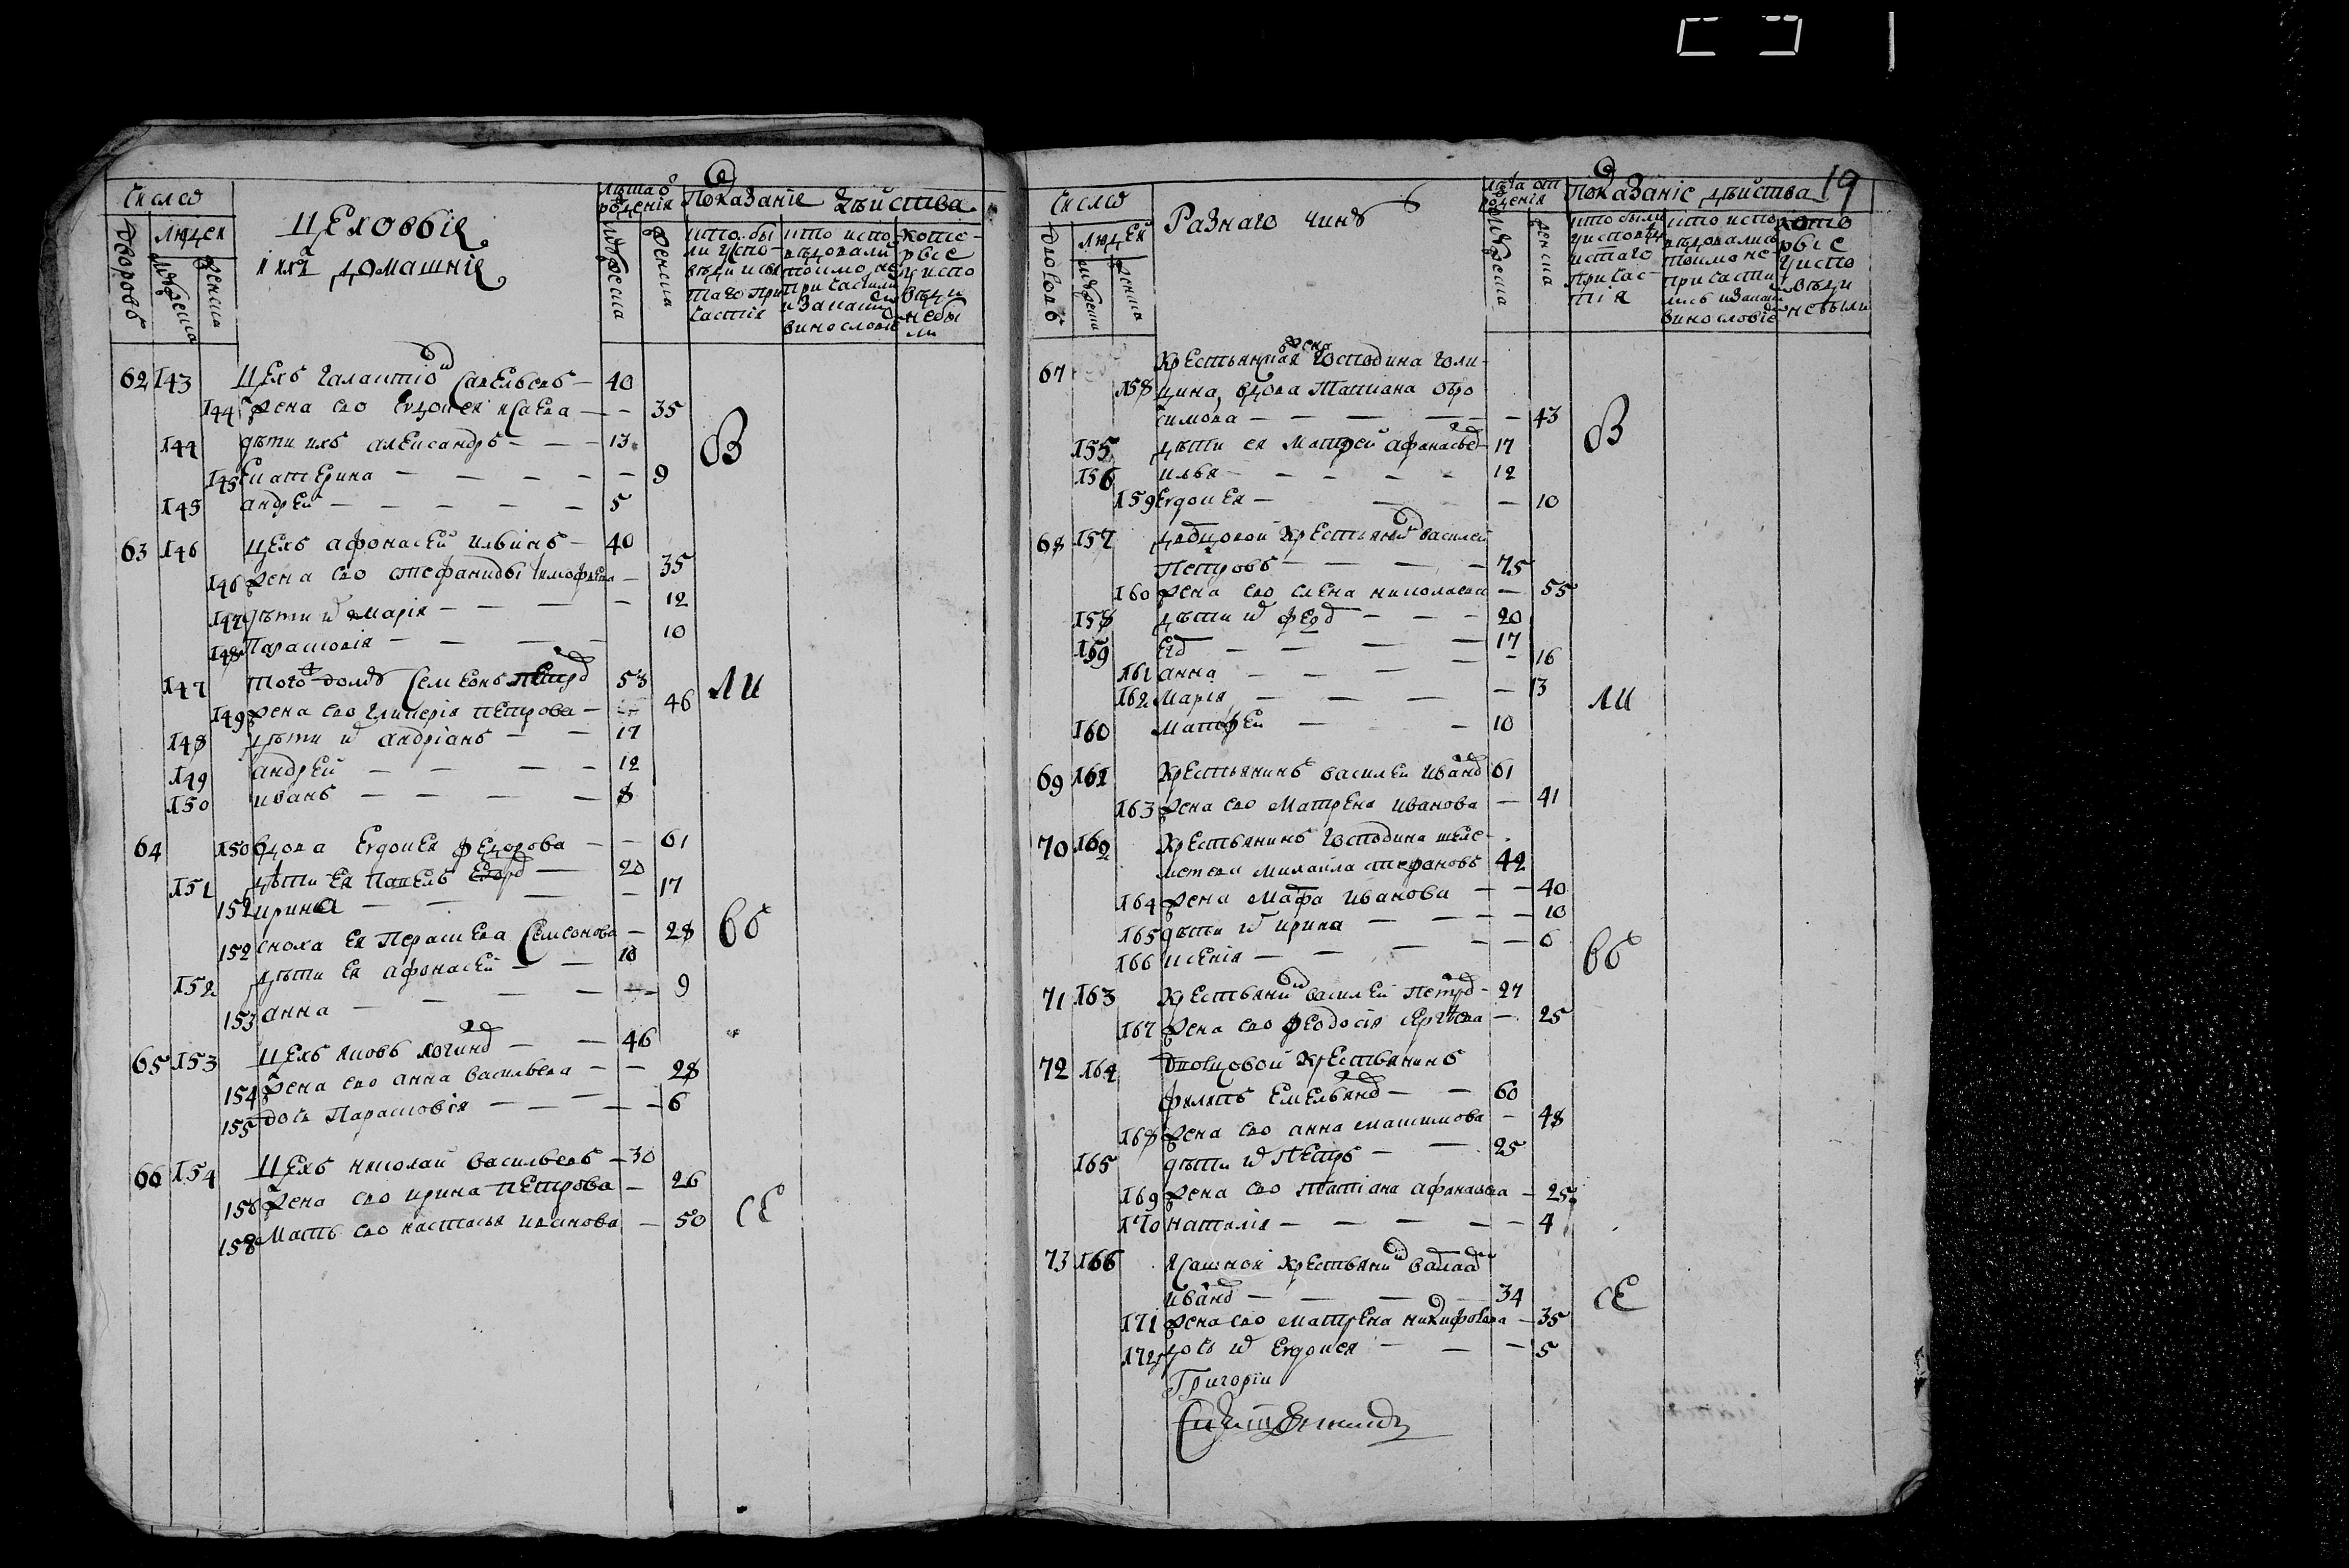 Число
Дворовъ
Людей
Мужеска
Женска
Цеховыя
и ихъ домашнія
Лѣта о рожденія
Мужеска
Женска
Показаніе дѣйства
кто бы
ли у испо
вѣди и св
таго при
частія
кто испо
вѣдовали
токмо не
причасти
и за каки
винословіе
кото
рые
у испо
вѣди
не бы
ли
62 143 Цехъ Галактіо Савельевъ — 40
144 жена ево Евдокея Исаева — — 35
144 дѣти ихъ Александръ — — — 13
145 Екатерина — — — — 9
145 андрей — — — — — 5
В
63 146 Цехъ афонасей Ильинъ — 40
146 жена ево стефанида Тимофѣева — 35
147 дѣти и Марія — — — — 12
148 Парасковія — — — — 10
147 того дому Семіонъ Петро 53
149 жена ево гликерія петрова — — 46
148 дѣти и андріанъ — — 17
149 андрей — — — — 12
150 иванъ — — — — 8
ли
64 150 вдова Евдокея Федорова — — 61
151 дѣти Ея Павелъ Егоро — 20
151 ирина — — — — 17
152 сноха Ея Параскева Семионова — 28
152 дѣти Ея афонасей — — 10
153 анна — — — — — 9
вб
65 153 Цехъ яковъ логино — — 46
154 жена ево анна васильева — — 28
155 дочь Парасковія — — — — 6
66 154 Цехъ николай васильевъ — 30
156 жена ево ирина петрова — 26
158 Мать ево настасья иванова — 50
се
19
Число
Дворовъ
Людей
Мужеска
Женска
Разнаго чину
Лѣта от рожденія
Мужеска
Женска
Показаніе дѣйства
кто были
у исповѣд
и с таго
причас
тія
кто испо
вѣдовались
токмо не
причасти
лись и за каки
винословіе
кото
рые
у испо
вѣди
не были
67 жена
Крестьянская господина голи-
158 цина, вдова Татиана
симова — — — — — — 43
155 дѣти ея Матфей афанасьев 17
156 илья — — — — 12
159 Евдокея — — — — 10
В
68 157 дворцовой крестьяни василей
Петровъ — — — — 75
160 жена ево елена николаева — 55
158 дѣти и федо — — — 20
159 Его — — — — 17
161 анна — — — 16
162 Марія — — — — 13
160 матфей — — 10
ли
69 161 Крестьянинъ василей ивано 61
163 жена ево Матрена иванова — 41
70 162 Крестьянинъ господина шеле-
метева михаила стефановъ 42
164 жена Марфа иванова — — 40
165 дѣти и ирина — — — — 10
166 ксенія — — — — — 6
вб
71 163 Крестьяни василей петро — 27
167 жена ево феодосія сергѣева — 25
72 164 Дворцовой крестьянинъ
филатъ Емельяно — — 60
168 жена ево анна максимова — 48
165 дѣти и петръ — — 25
169 жена ево Татіана афанасева — 25
170 наталія — — — — — 4
73 166 Ясашной крестьяни
ивано — — — — 34
171 жена ево матрена никифорова — 35
172 дочь и Евдокея — — — 5
се
Григорій